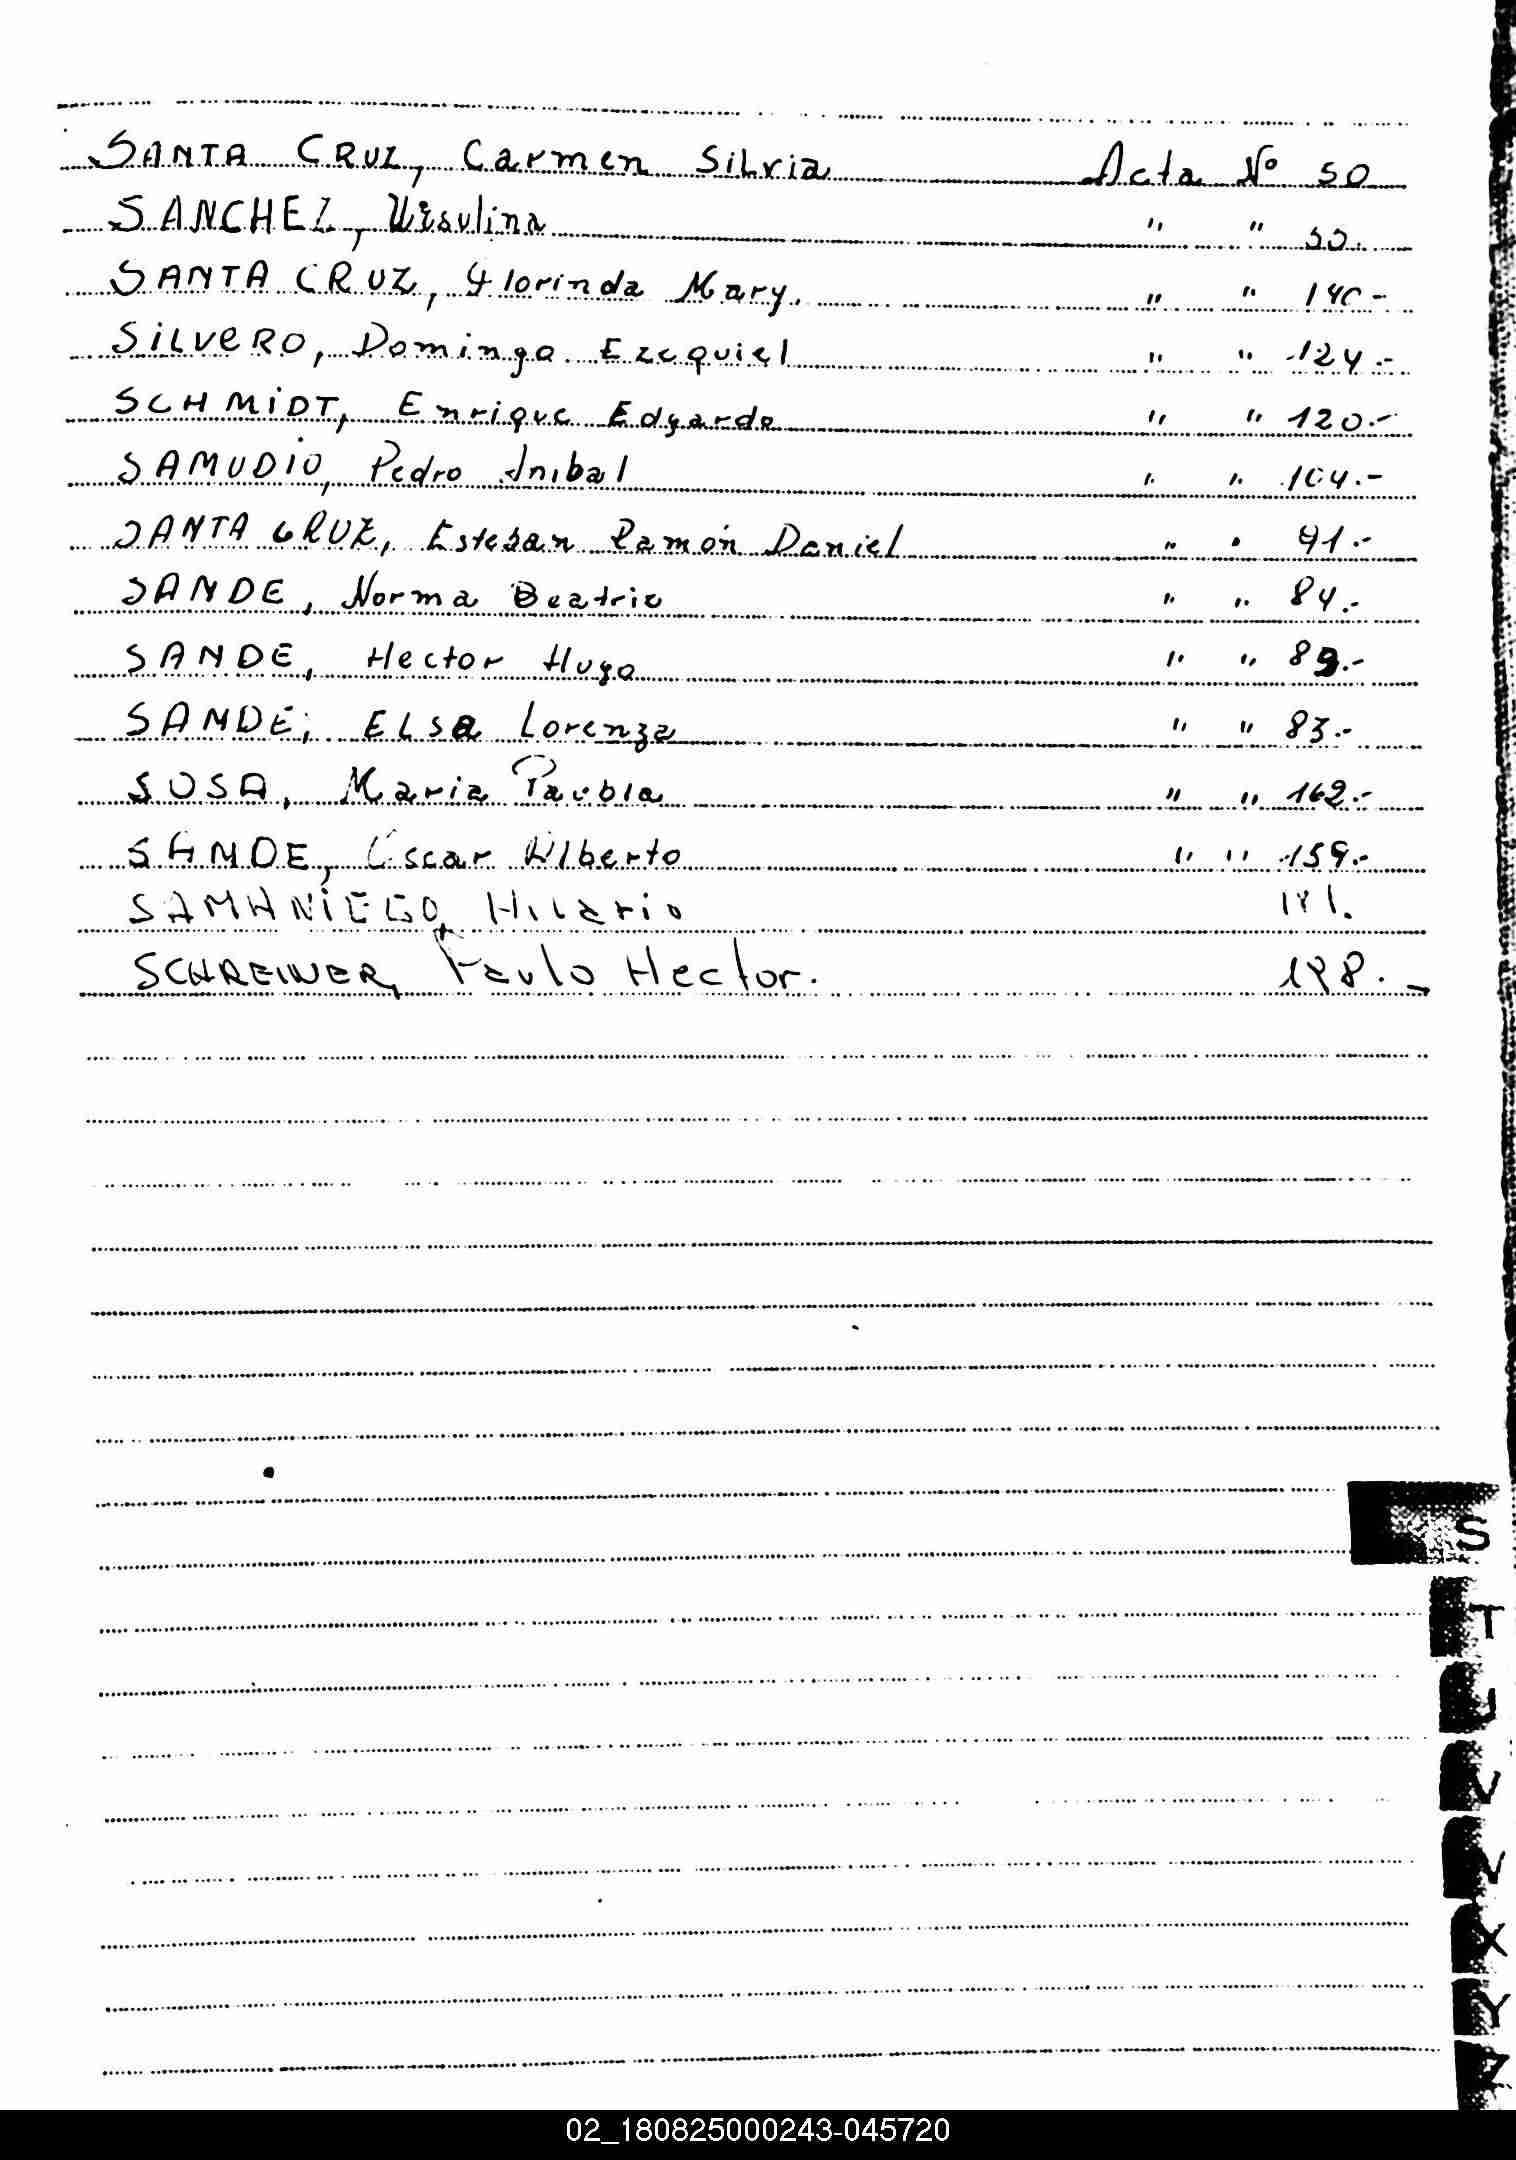 SANTA CRUZ, Carmen Silvia Acta Nº 50
SANCHEZ, Ursulina " " 50.
SANTA CRUZ, Florinda Mary. " " 140.-
SILVERO, Domingo Ezequiel " " 124.-
SCHMIDT, Enrique Edgardo " " 120.-
SAMUDIO, Pedro Anibal " " 104.-
SANTA CRUZ, Esteban Ramón Daniel " " 91.-
SANDE, Norma Beatriz " " 84.-
SANDE, Hector Hugo " " 89.-
SANDE, ELSA Lorenza " " 83.-
SOSA, Maria Paubla " " 162.-
SANDE, Oscar Alberto " " 159.-
SAMANIEGO, Hilario
SCHREINER, Paulo Hector. 198.-
S
T
U
V
W
X
Y
Z
02_180825000243-045720